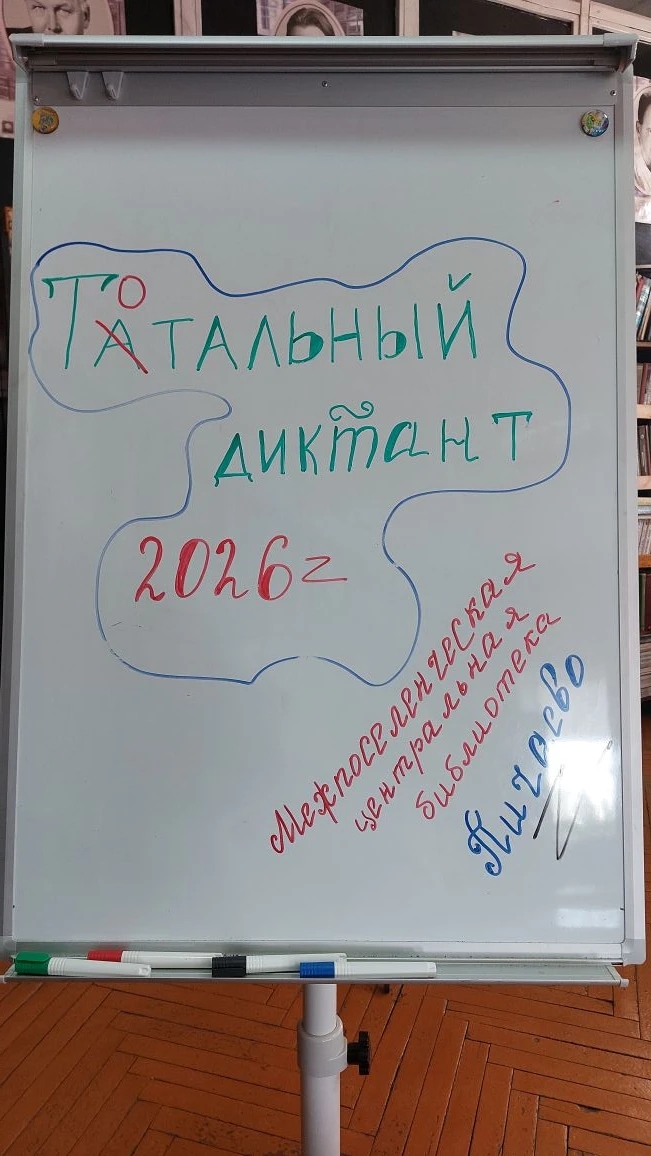 ТАОТАЛЬНЫЙ
ДИКТАНТ
2026г
Межпоселенческая
центральная
библиотека
Пичаево